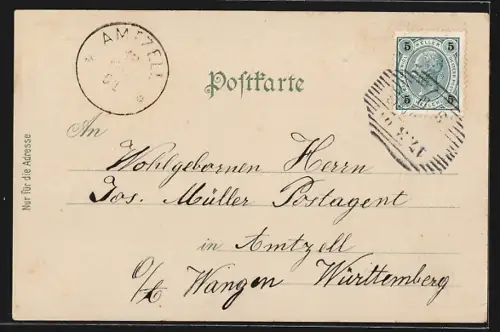 AMTZELL
Postkarte
5 HELLER 5
5 5
An
Nur für die Adresse
Wohlgebornen Herrn
Jos. Müller Postagent
in Amtzell
Wangen Württemberg